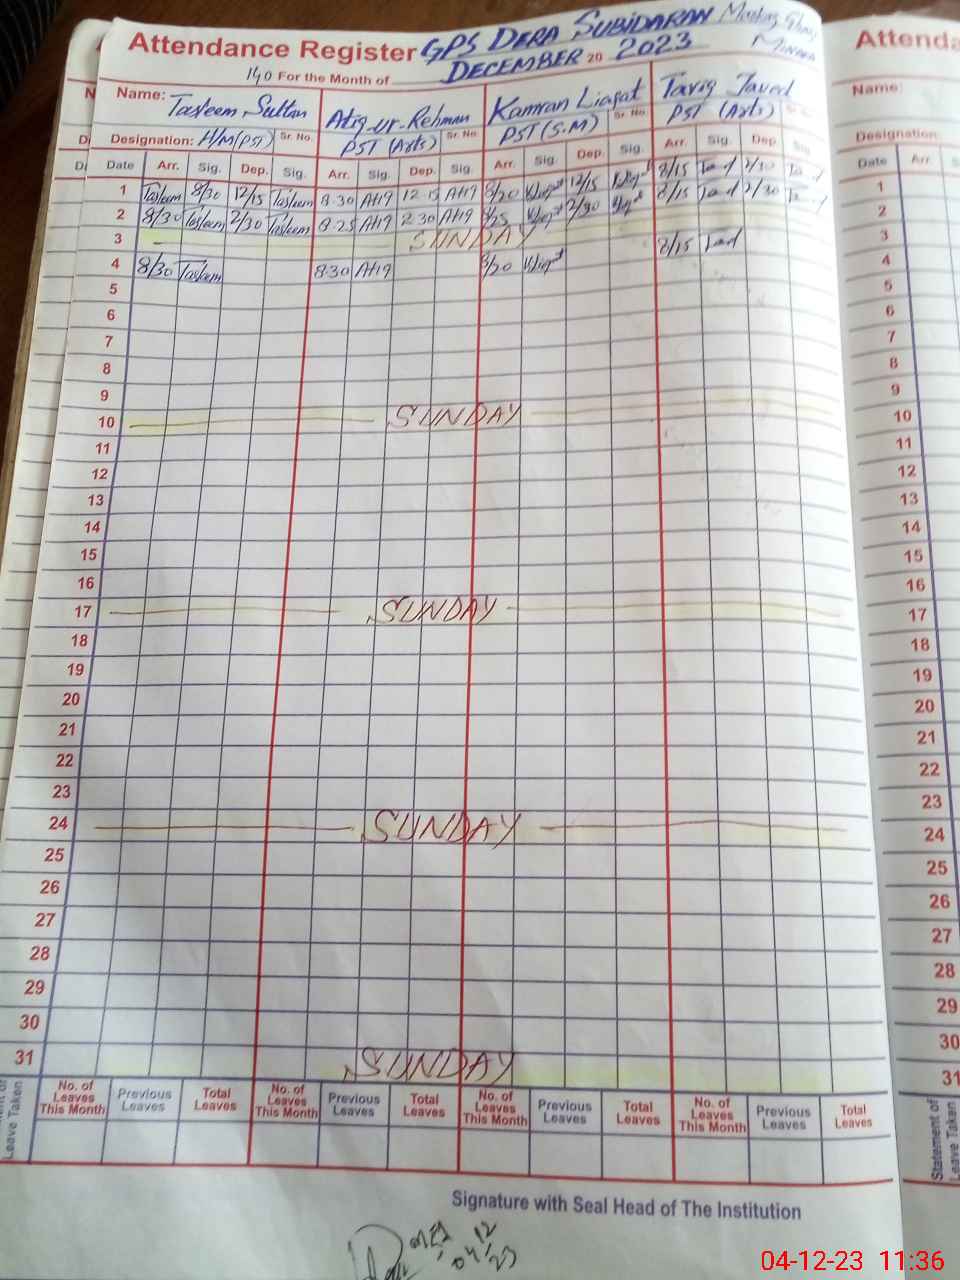 Attendance Register GPS DERA SUBIDARAN
140 For the Month of DECEMBER 20 2023
Name: Tasleem Sultan Atiq-ur-Rehman Kamran Liaqat Tariq Javed
Designation: H/M(PST) Sr. No. PST (Arts) Sr. No. PST (S.M) Sr. No. PST (Arts)
Date Arr. Sig. Dep. Sig. Arr. Sig. Dep. Sig. Arr. Sig. Dep. Sig. Arr. Sig. Dep. Sig.
1 Tasleem 8/30 12/15 Tasleem 8.30 Atiq 12 15 Atiq 8/20 12/15 8/15 2/30
2 8/30 Tasleem 2/30 Tasleem 8.25 Atiq 2 30 Atiq 8/25 2/30 8/15 2/30
3 SUNDAY
4 8/30 Tasleem 8.30 Atiq 8/20 8/15
5
6
7
8
9
10 SUNDAY
11
12
13
14
15
16
17 SUNDAY
18
19
20
21
22
23
24 SUNDAY
25
26
27
28
29
30
31 SUNDAY
Leave Taken No. of Leaves This Month Previous Leaves Total Leaves No. of Leaves This Month Previous Leaves Total Leaves No. of Leaves This Month Previous Leaves Total Leaves No. of Leaves This Month Previous Leaves Total Leaves
Signature with Seal Head of The Institution
04/12/23
Attenda
Name:
Designation:
Date Arr.
1
2
3
4
5
6
7
8
9
10
11
12
13
14
15
16
17
18
19
20
21
22
23
24
25
26
27
28
29
30
31
Statement of
Leave Taken
04-12-23 11:36